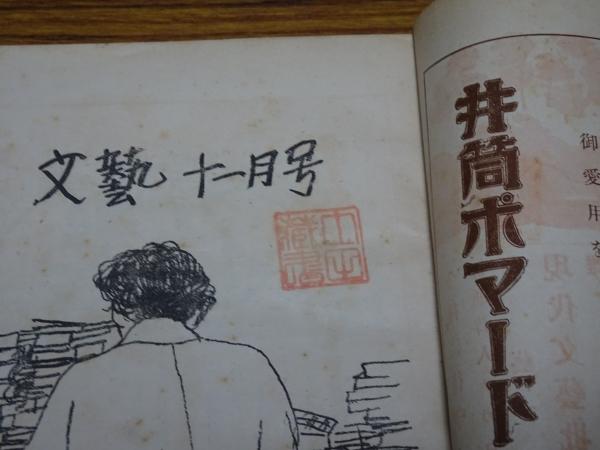 文藝 十一月号
井筒ポマード
御愛用を
現代文藝